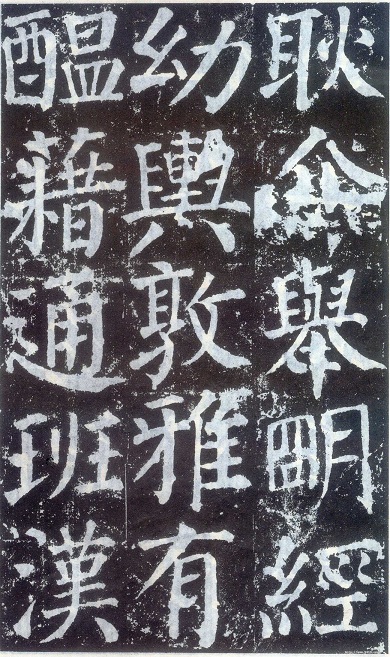 耿介舉明經
幼輿敦雅有
醞藉通班漢